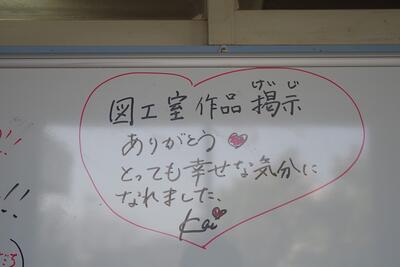 げいじ
図工室 作品 掲示
ありがとう
とっても幸せな気分に
なれました。
Kai